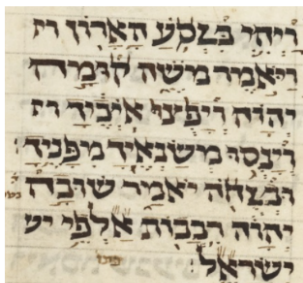 ויהי בנסע הארון וי
ויאמר משה קומה
יהוה ויפצו איביך וי
וינסו משנאיך מפניך
ובנחה יאמר שובה
יהוה רבבות אלפי יש
ישראל